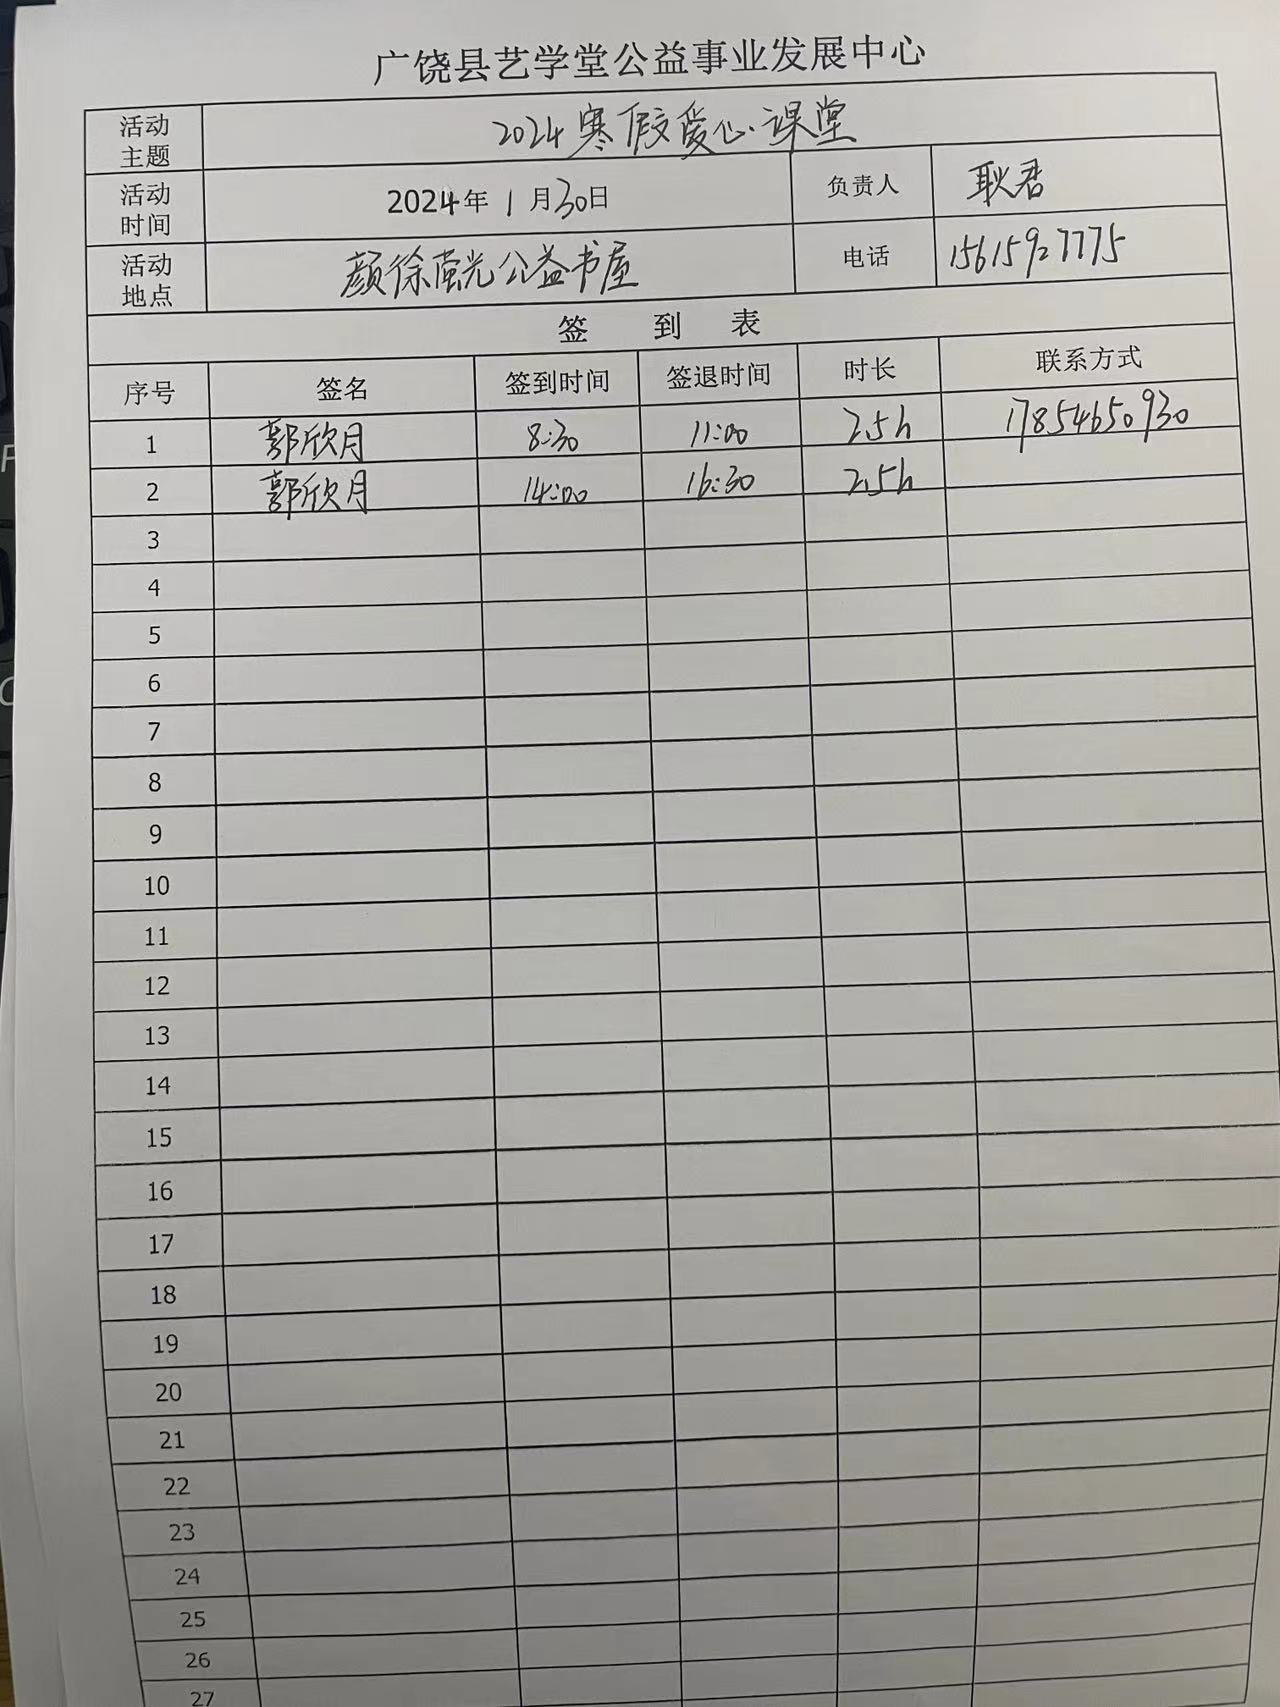 广饶县艺学堂公益事业发展中心
活动主题 2024寒假爱心课堂
活动时间 2024年1月30日 负责人 耿君
活动地点 颜徐萤光公益书屋 电话 15615927775
签到表
序号 签名 签到时间 签退时间 时长 联系方式
1 郭欣月 8:30 11:00 2.5h 17854650930
2 郭欣月 14:00 16:30 2.5h
3
4
5
6
7
8
9
10
11
12
13
14
15
16
17
18
19
20
21
22
23
24
25
26
27